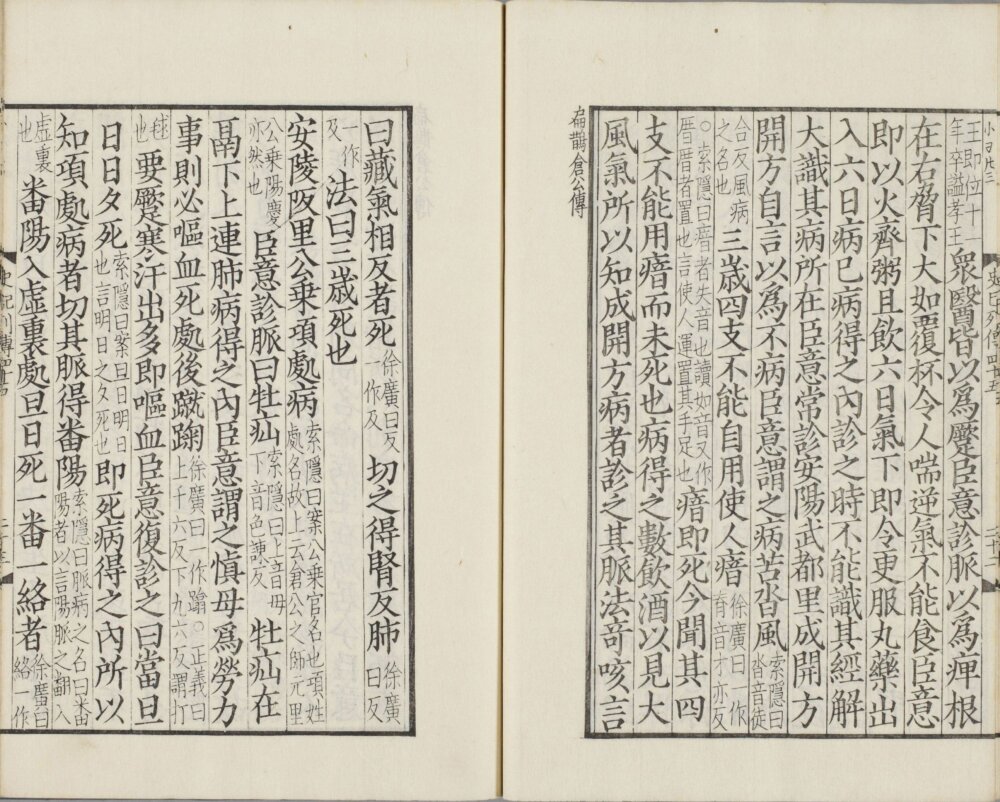 王即位十一年卒諡孝王衆醫皆以爲蹷臣意診脈以爲痺根
在右脅下大如覆杯令人喘逆氣不能食臣意
即以火齊粥且飲六日氣下即令更服丸藥出
入六日病已病得之內診之時不能識其經解
大識其病所在臣意常診安陽武都里成開方
開方自言以爲不病臣意謂之病苦沓風索隱曰沓音徒
合反風病之名也三歲四支不能自用使人瘖徐廣曰一作脊音才亦反
○索隱曰瘖者失音也讀如音又作厝厝者置也言使人運置其手足也瘖即死今聞其四
支不能用瘖而未死也病得之數飲酒以見大
風氣所以知成開方病者診之其脈法奇咳言
扁鵲倉公傳
曰藏氣相反者死徐廣曰反一作及切之得腎反肺徐廣曰反
一作及法曰三歲死也
安陵阪里公乘項處病索隱曰案公乘官名也項姓處名故上云倉公之師元里
公乘陽慶亦然也臣意診脈曰牡疝索隱曰上音母下音色諫反牡疝在
鬲下上連肺病得之內臣意謂之慎毋爲勞力
事則必嘔血死處後蹴踘徐廣曰一作蹋○正義曰上千六反下九六反謂打
毬也要蹷寒汗出多即嘔血臣意復診之曰當旦
日日夕死索隱曰案旦日明日也言明日之夕死也即死病得之內所以
知項處病者切其脈得番陽索隱曰脈病之名曰番陽者以言陽脈之翻入
虛裏也番陽入虛裏處旦日死一番一絡者徐廣曰絡一作